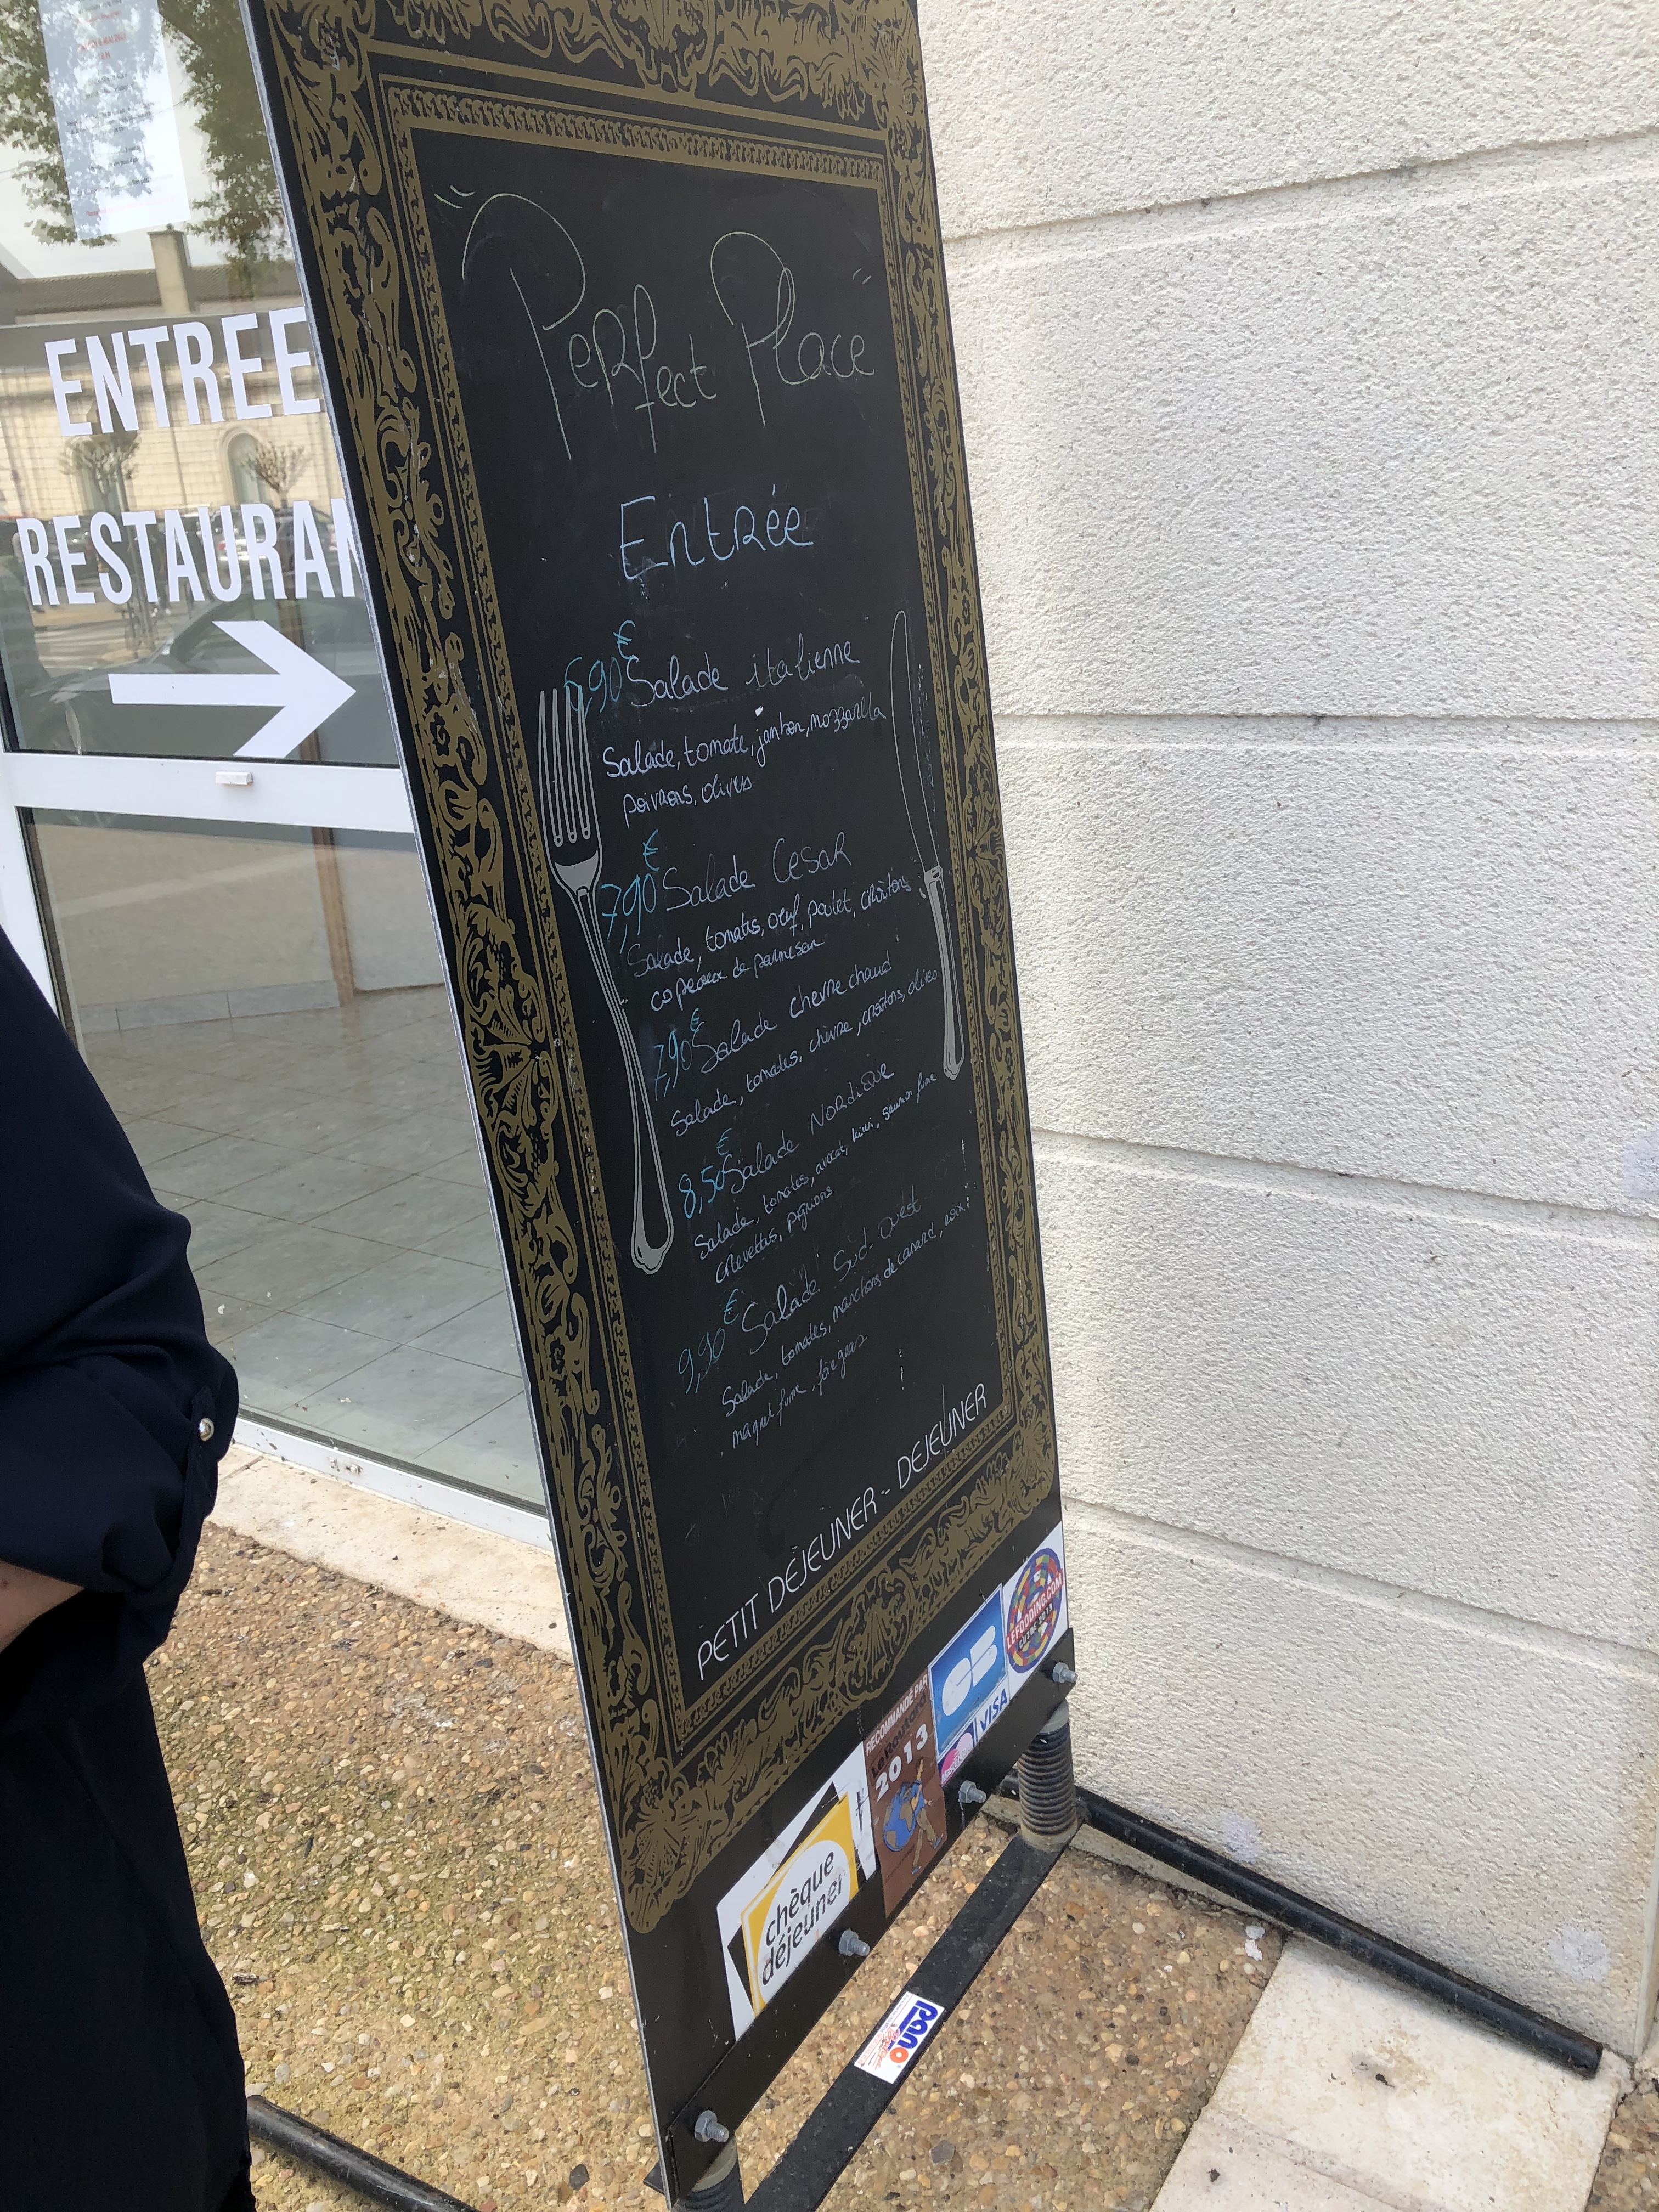 ENTREE
RESTAURAN
Perfect Place
Entrée
6,90€ Salade italienne
Salade, tomate, jambon, mozzarella
poivrons, olives
7,90€ Salade Cesar
Salade, tomates, œuf, poulet, croûtons
copeaux de parmesan
7,90€ Salade chevre chaud
Salade, tomates, chèvre, croûtons, olives
8,50€ Salade Nordique
Salade, tomates, avocat, kiwi, saumon fumé
crevettes, pignons
9,90€ Salade Sud-ouest
Salade, tomates, manchons de canard, noix
magret fumé, foie gras
PETIT DÉJEUNER - DEJEUNER
LEFOODING.COM
GUIDE 2013
CB
VISA
RECOMMANDÉ PAR
Le Routard
2013
chèque
déjeuner
PANO